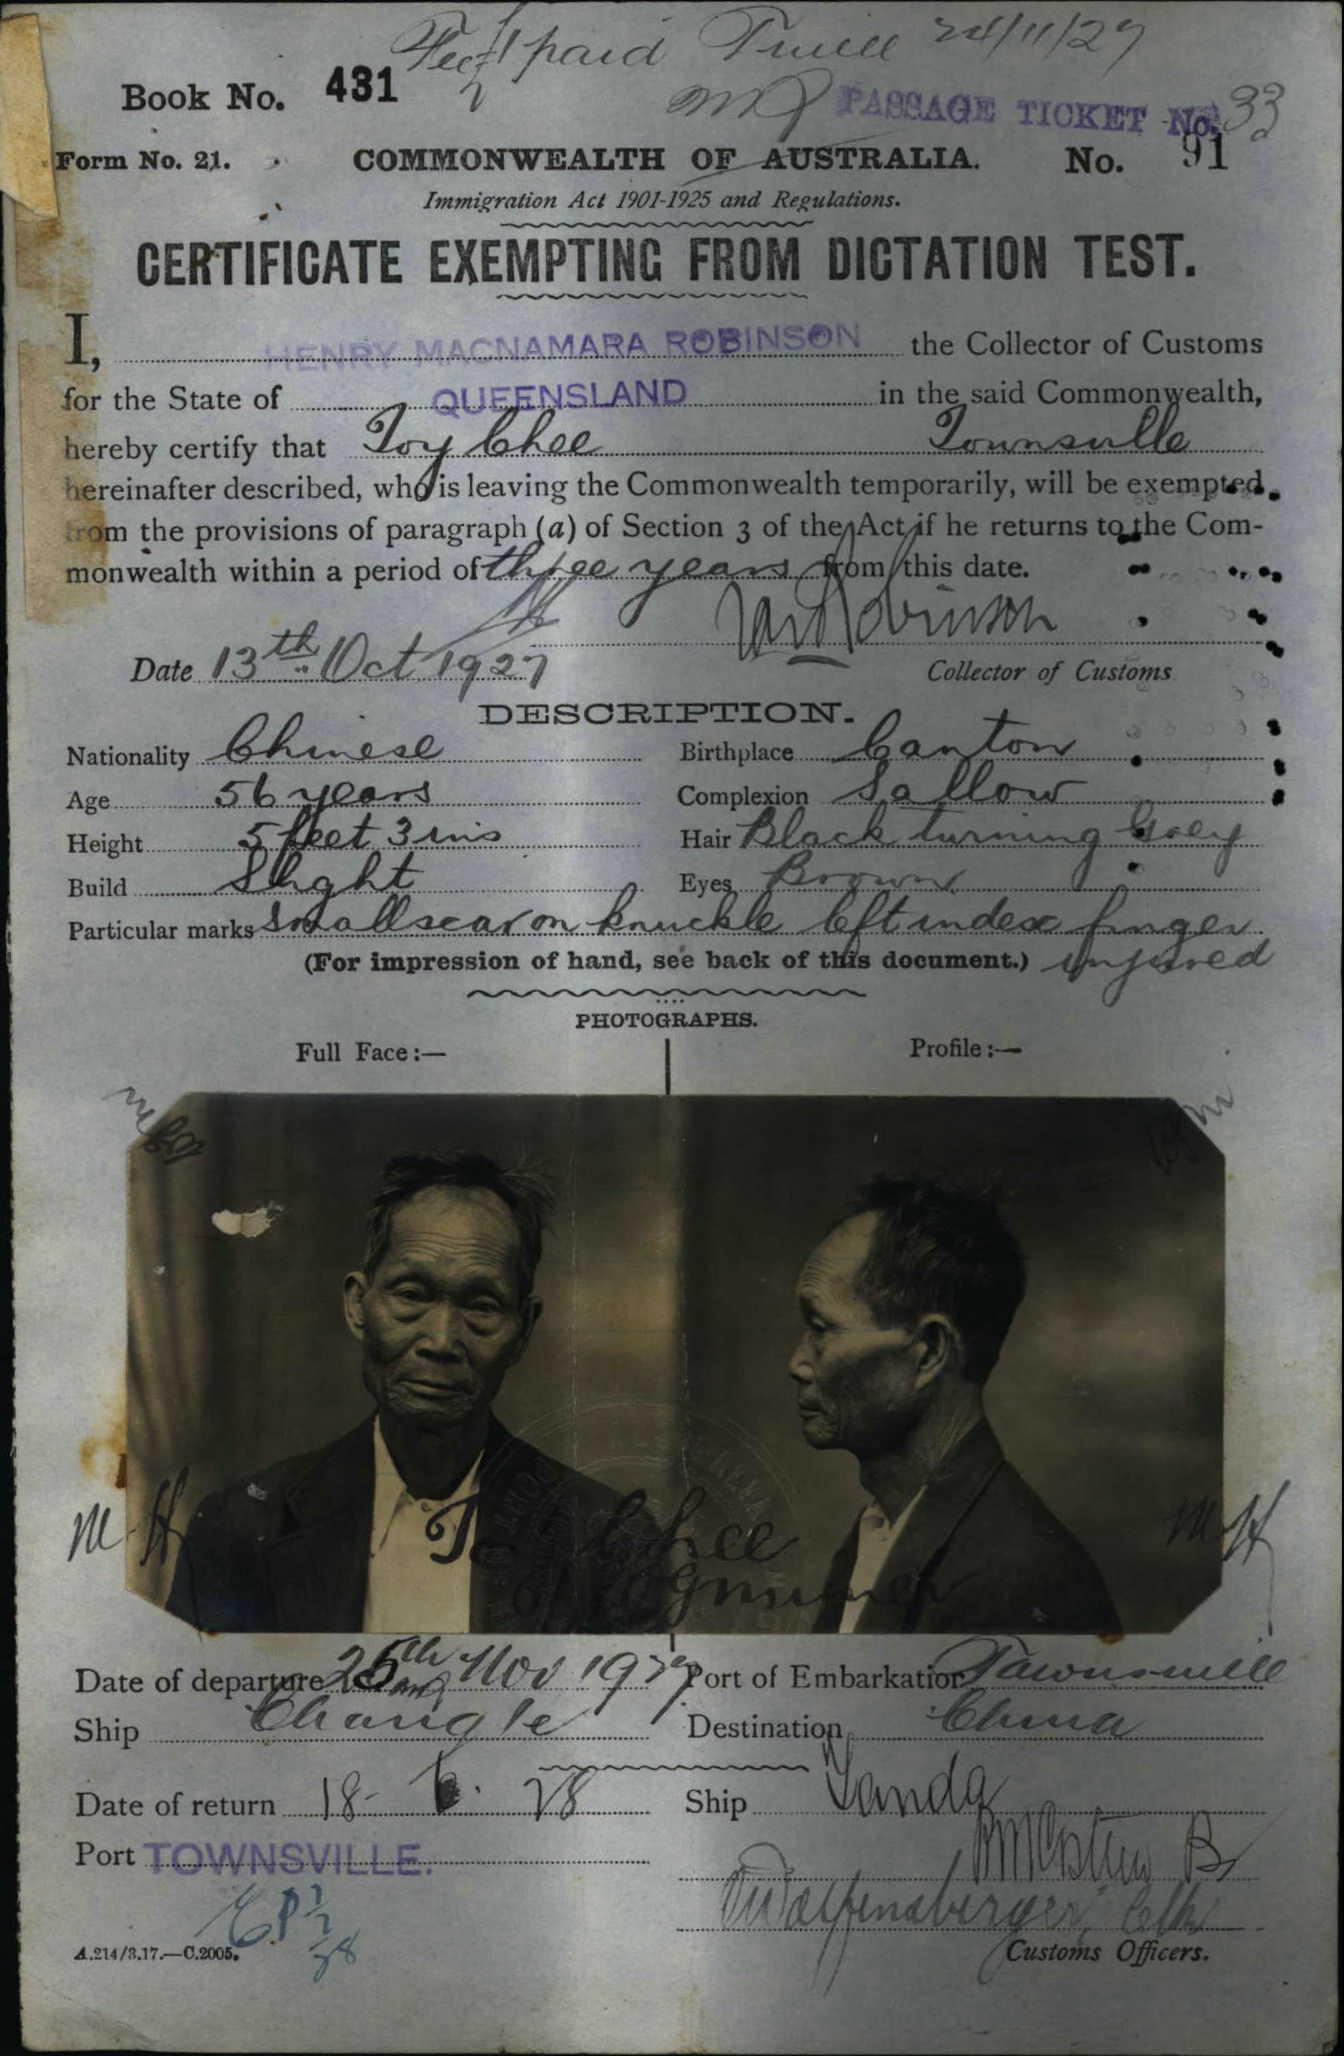 Fee £1 paid 24/11/27
Book No. 431
PASSAGE TICKET No. 33
Form No. 21. COMMONWEALTH OF AUSTRALIA. No. 91
Immigration Act 1901-1925 and Regulations.
CERTIFICATE EXEMPTING FROM DICTATION TEST.
I, HENRY MACNAMARA ROBINSON the Collector of Customs
for the State of QUEENSLAND in the said Commonwealth,
hereby certify that Toy Chee Townsville
hereinafter described, who is leaving the Commonwealth temporarily, will be exempted
from the provisions of paragraph (a) of Section 3 of the Act if he returns to the Com-
monwealth within a period of three years from this date.
Robinson
Date 13th Oct 1927 Collector of Customs
DESCRIPTION.
Nationality Chinese Birthplace Canton
Age 56 years Complexion Sallow
Height 5 feet 3 ins Hair Black turning Grey
Build Slight Eyes Brown
Particular marks Small scar on knuckle left index finger
(For impression of hand, see back of this document.) injured
PHOTOGRAPHS.
Full Face:— Profile:—
M H M H
Toy Chee
Date of departure 25th Nov 1927 Port of Embarkation Townsville
Ship Changte Destination China
Date of return 18- 6. 28 Ship Tanda
Port TOWNSVILLE.
A.214/3.17.—C.2005. Customs Officers.